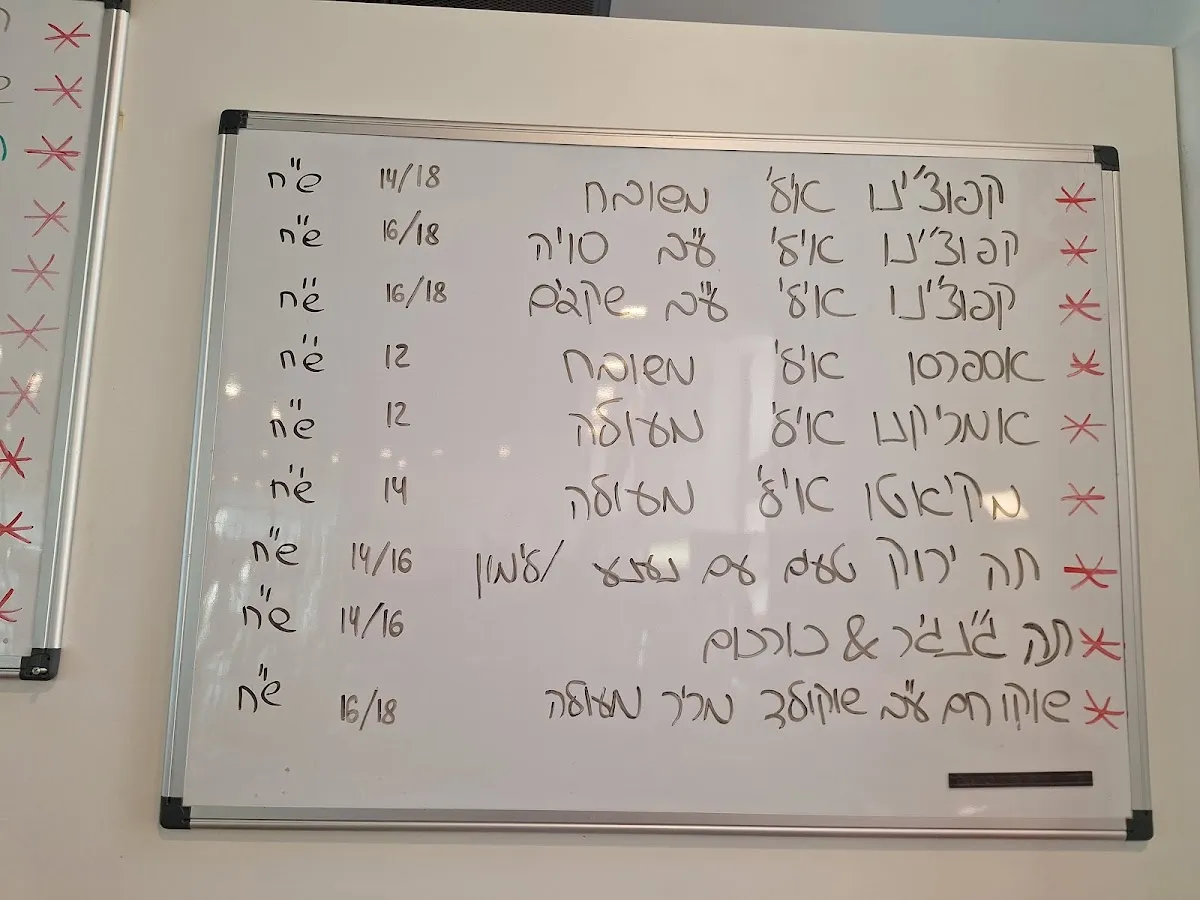 * קפוצ'ינו אילי משובח 14/18 ש"ח
* קפוצ'ינו אילי ע"ב סויה 16/18 ש"ח
* קפוצ'ינו אילי ע"ב שקדים 16/18 ש"ח
* אספרסו אילי משובח 12 ש"ח
* אמריקנו אילי מעולה 12 ש"ח
* מקיאטו אילי מעולה 14 ש"ח
* תה ירוק טעים עם נענע /לימון 14/16 ש"ח
* תה ג'ינג'ר & כורכום 14/16 ש"ח
* שוקו חם ע"ב שוקולד מריר מעולה 16/18 ש"ח